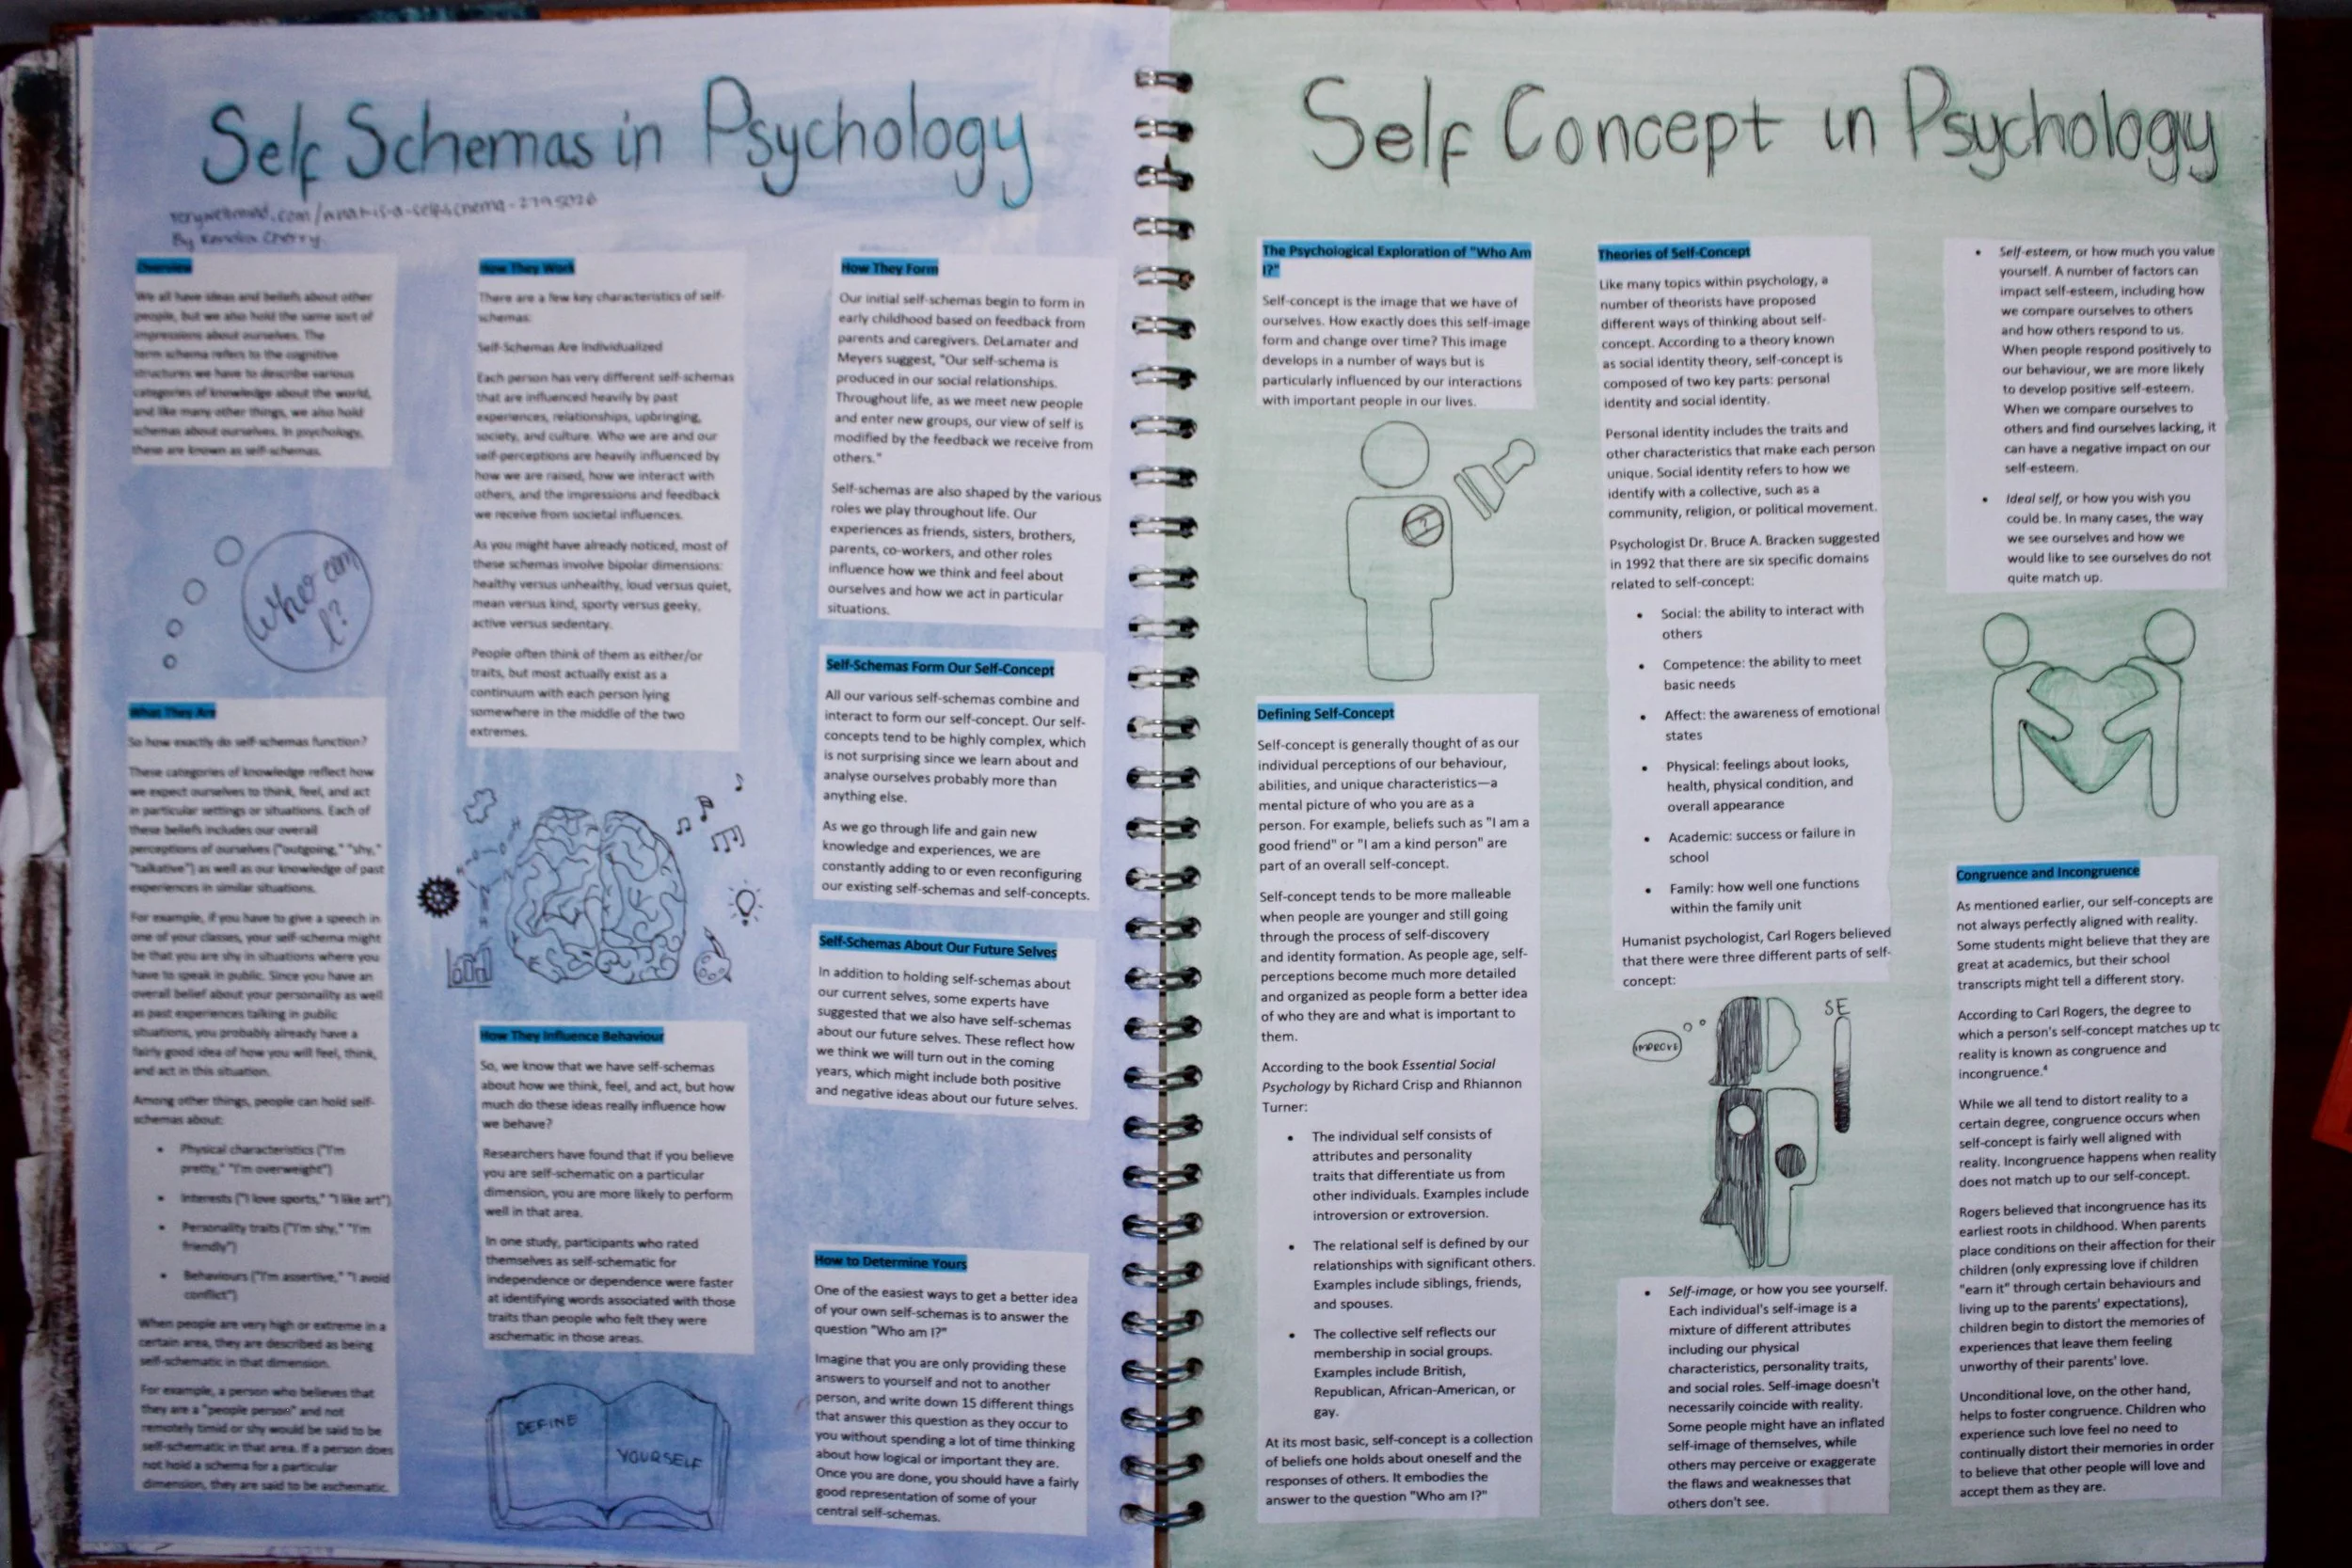 Self Schemas in Psychology
verywellmind.com/what-is-a-self-schema-2795026
By Kendra Cherry
Overview
We all have ideas and beliefs about other
people, but we also hold the same sort of
impressions about ourselves. The
term schema refers to the cognitive
structures we have to describe various
categories of knowledge about the world,
and like many other things, we also hold
schemas about ourselves. In psychology,
these are known as self-schemas.
Who am
I?
What They Are
So how exactly do self-schemas function?
These categories of knowledge reflect how
we expect ourselves to think, feel, and act
in particular settings or situations. Each of
these beliefs includes our overall
perceptions of ourselves ("outgoing," "shy,"
"talkative") as well as our knowledge of past
experiences in similar situations.
For example, if you have to give a speech in
one of your classes, your self-schema might
be that you are shy in situations where you
have to speak in public. Since you have an
overall belief about your personality as well
as past experiences talking in public
situations, you probably already have a
fairly good idea of how you will feel, think,
and act in this situation.
Among other things, people can hold self-
schemas about:
• Physical characteristics ("I'm
pretty," "I'm overweight")
• Interests ("I love sports," "I like art")
• Personality traits ("I'm shy," "I'm
friendly")
• Behaviours ("I'm assertive," "I avoid
conflict")
When people are very high or extreme in a
certain area, they are described as being
self-schematic in that dimension.
For example, a person who believes that
they are a "people person" and not
remotely timid or shy would be said to be
self-schematic in that area. If a person does
not hold a schema for a particular
dimension, they are said to be aschematic.
How They Work
There are a few key characteristics of self-
schemas:
Self-Schemas Are Individualized
Each person has very different self-schemas
that are influenced heavily by past
experiences, relationships, upbringing,
society, and culture. Who we are and our
self-perceptions are heavily influenced by
how we are raised, how we interact with
others, and the impressions and feedback
we receive from societal influences.
As you might have already noticed, most of
these schemas involve bipolar dimensions:
healthy versus unhealthy, loud versus quiet,
mean versus kind, sporty versus geeky,
active versus sedentary.
People often think of them as either/or
traits, but most actually exist as a
continuum with each person lying
somewhere in the middle of the two
extremes.
How They Influence Behaviour
So, we know that we have self-schemas
about how we think, feel, and act, but how
much do these ideas really influence how
we behave?
Researchers have found that if you believe
you are self-schematic on a particular
dimension, you are more likely to perform
well in that area.
In one study, participants who rated
themselves as self-schematic for
independence or dependence were faster
at identifying words associated with those
traits than people who felt they were
aschematic in those areas.
DEFINE
YOURSELF
How They Form
Our initial self-schemas begin to form in
early childhood based on feedback from
parents and caregivers. DeLamater and
Meyers suggest, "Our self-schema is
produced in our social relationships.
Throughout life, as we meet new people
and enter new groups, our view of self is
modified by the feedback we receive from
others."
Self-schemas are also shaped by the various
roles we play throughout life. Our
experiences as friends, sisters, brothers,
parents, co-workers, and other roles
influence how we think and feel about
ourselves and how we act in particular
situations.
Self-Schemas Form Our Self-Concept
All our various self-schemas combine and
interact to form our self-concept. Our self-
concepts tend to be highly complex, which
is not surprising since we learn about and
analyse ourselves probably more than
anything else.
As we go through life and gain new
knowledge and experiences, we are
constantly adding to or even reconfiguring
our existing self-schemas and self-concepts.
Self-Schemas About Our Future Selves
In addition to holding self-schemas about
our current selves, some experts have
suggested that we also have self-schemas
about our future selves. These reflect how
we think we will turn out in the coming
years, which might include both positive
and negative ideas about our future selves.
How to Determine Yours
One of the easiest ways to get a better idea
of your own self-schemas is to answer the
question "Who am I?"
Imagine that you are only providing these
answers to yourself and not to another
person, and write down 15 different things
that answer this question as they occur to
you without spending a lot of time thinking
about how logical or important they are.
Once you are done, you should have a fairly
good representation of some of your
central self-schemas.
Self Concept in Psychology
The Psychological Exploration of "Who Am
I?"
Self-concept is the image that we have of
ourselves. How exactly does this self-image
form and change over time? This image
develops in a number of ways but is
particularly influenced by our interactions
with important people in our lives.
?
Defining Self-Concept
Self-concept is generally thought of as our
individual perceptions of our behaviour,
abilities, and unique characteristics—a
mental picture of who you are as a
person. For example, beliefs such as "I am a
good friend" or "I am a kind person" are
part of an overall self-concept.
Self-concept tends to be more malleable
when people are younger and still going
through the process of self-discovery
and identity formation. As people age, self-
perceptions become much more detailed
and organized as people form a better idea
of who they are and what is important to
them.
According to the book Essential Social
Psychology by Richard Crisp and Rhiannon
Turner:
• The individual self consists of
attributes and personality
traits that differentiate us from
other individuals. Examples include
introversion or extroversion.
• The relational self is defined by our
relationships with significant others.
Examples include siblings, friends,
and spouses.
• The collective self reflects our
membership in social groups.
Examples include British,
Republican, African-American, or
gay.
At its most basic, self-concept is a collection
of beliefs one holds about oneself and the
responses of others. It embodies the
answer to the question "Who am I?"
Theories of Self-Concept
Like many topics within psychology, a
number of theorists have proposed
different ways of thinking about self-
concept. According to a theory known
as social identity theory, self-concept is
composed of two key parts: personal
identity and social identity.
Personal identity includes the traits and
other characteristics that make each person
unique. Social identity refers to how we
identify with a collective, such as a
community, religion, or political movement.
Psychologist Dr. Bruce A. Bracken suggested
in 1992 that there are six specific domains
related to self-concept:
• Social: the ability to interact with
others
• Competence: the ability to meet
basic needs
• Affect: the awareness of emotional
states
• Physical: feelings about looks,
health, physical condition, and
overall appearance
• Academic: success or failure in
school
• Family: how well one functions
within the family unit
Humanist psychologist, Carl Rogers believed
that there were three different parts of self-
concept:
IMPROVE
SE
• Self-image, or how you see yourself.
Each individual's self-image is a
mixture of different attributes
including our physical
characteristics, personality traits,
and social roles. Self-image doesn't
necessarily coincide with reality.
Some people might have an inflated
self-image of themselves, while
others may perceive or exaggerate
the flaws and weaknesses that
others don't see.
• Self-esteem, or how much you value
yourself. A number of factors can
impact self-esteem, including how
we compare ourselves to others
and how others respond to us.
When people respond positively to
our behaviour, we are more likely
to develop positive self-esteem.
When we compare ourselves to
others and find ourselves lacking, it
can have a negative impact on our
self-esteem.
• Ideal self, or how you wish you
could be. In many cases, the way
we see ourselves and how we
would like to see ourselves do not
quite match up.
Congruence and Incongruence
As mentioned earlier, our self-concepts are
not always perfectly aligned with reality.
Some students might believe that they are
great at academics, but their school
transcripts might tell a different story.
According to Carl Rogers, the degree to
which a person's self-concept matches up to
reality is known as congruence and
incongruence.⁴
While we all tend to distort reality to a
certain degree, congruence occurs when
self-concept is fairly well aligned with
reality. Incongruence happens when reality
does not match up to our self-concept.
Rogers believed that incongruence has its
earliest roots in childhood. When parents
place conditions on their affection for their
children (only expressing love if children
"earn it" through certain behaviours and
living up to the parents' expectations),
children begin to distort the memories of
experiences that leave them feeling
unworthy of their parents' love.
Unconditional love, on the other hand,
helps to foster congruence. Children who
experience such love feel no need to
continually distort their memories in order
to believe that other people will love and
accept them as they are.